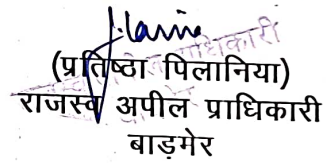 (प्रतिष्ठा पिलानिया)
राजस्व अपील प्राधिकारी
बाड़मेर